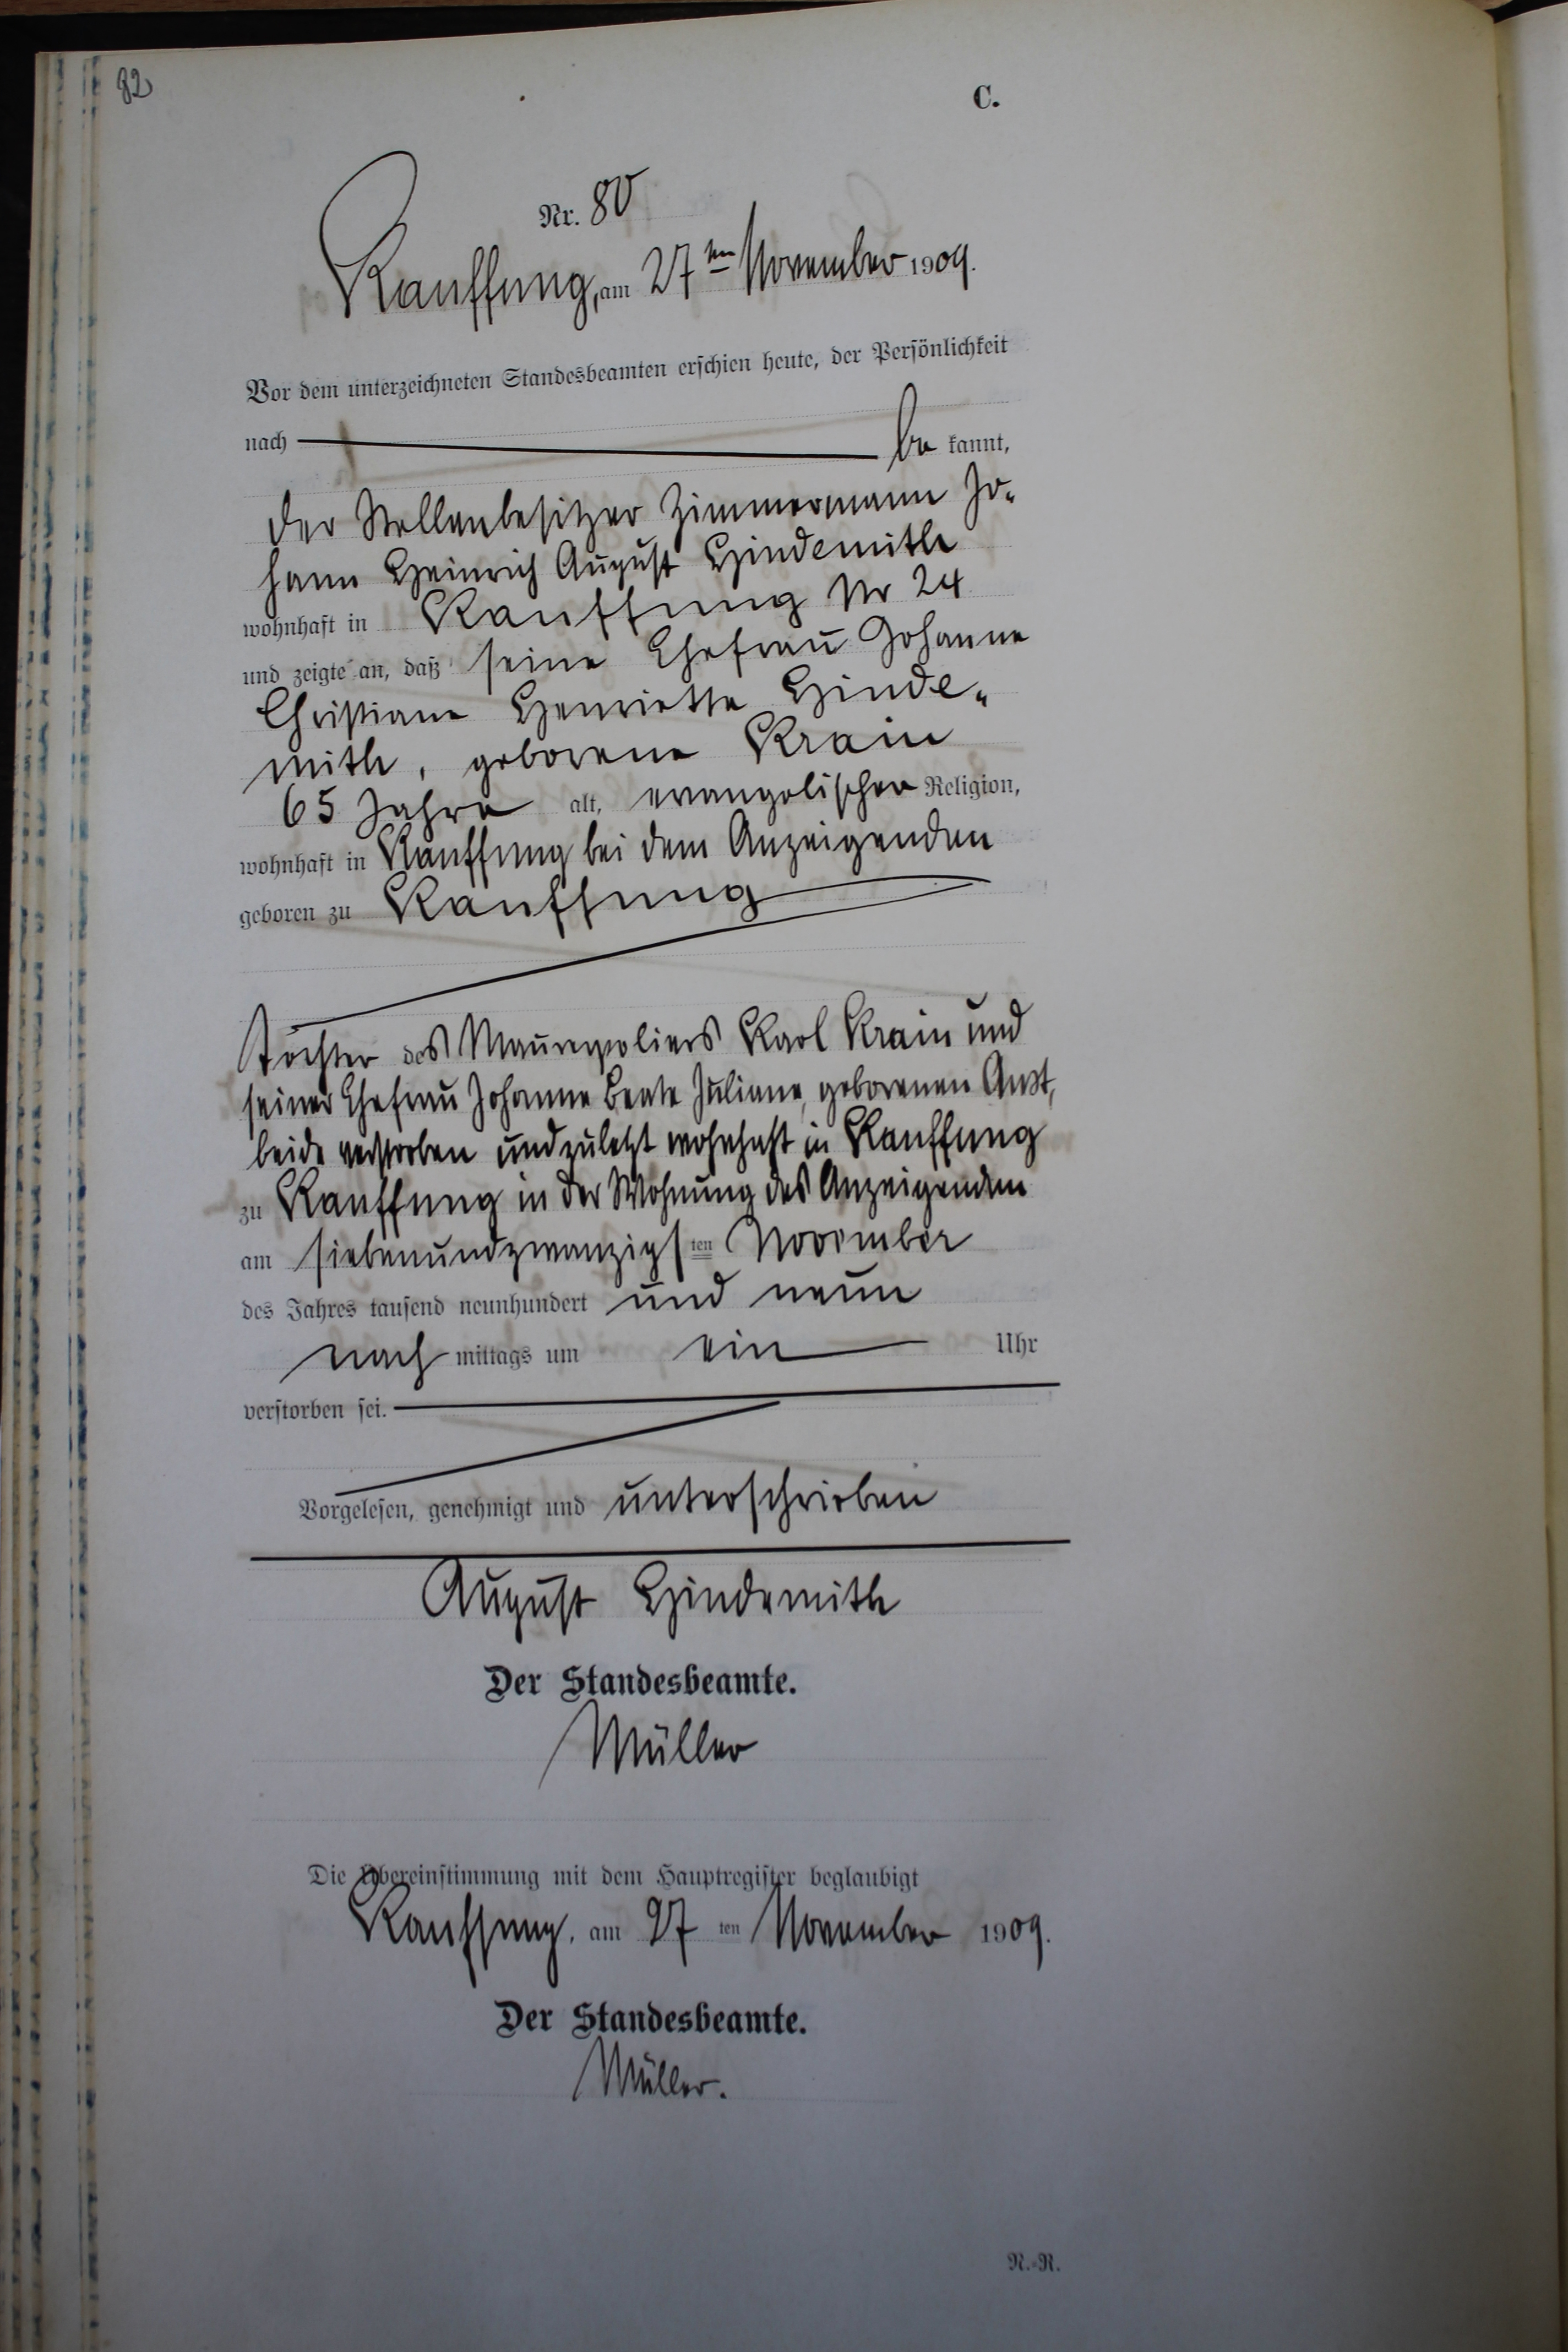 82
C.
Nr. 80
Kauffung, am 27ten November 1909.
Vor dem unterzeichneten Standesbeamten erschien heute, der Persönlichkeit
nach be kannt,
der Stellenbesitzer Zimmermann Jo-
hann Heinrich August Hindemith
wohnhaft in Kauffung Nr 24
und zeigte an, daß seine Ehefrau Johanne
Christiane Henriette Hinde-
mith, geborene Krain
65 Jahre alt, evangelischer Religion,
wohnhaft in Kauffung bei dem Anzeigenden
geboren zu Kauffung
Tochter des Maurerpoliers Karl Krain und
seiner Ehefrau Johanne Beate Juliane, geborenen
beide verstorben und zuletzt wohnhaft in Kauffung
zu Kauffung in der Wohnung des Anzeigenden
am siebenundzwanzigsten November
des Jahres tausend neunhundert und neun
nach mittags um ein Uhr
verstorben sei.
Vorgelesen, genehmigt und unterschrieben
August Hindemith
Der Standesbeamte.
Müller
Die Übereinstimmung mit dem Hauptregister beglaubigt
Kauffung, am 27 ten November 1909.
Der Standesbeamte.
Müller.
N.-R.